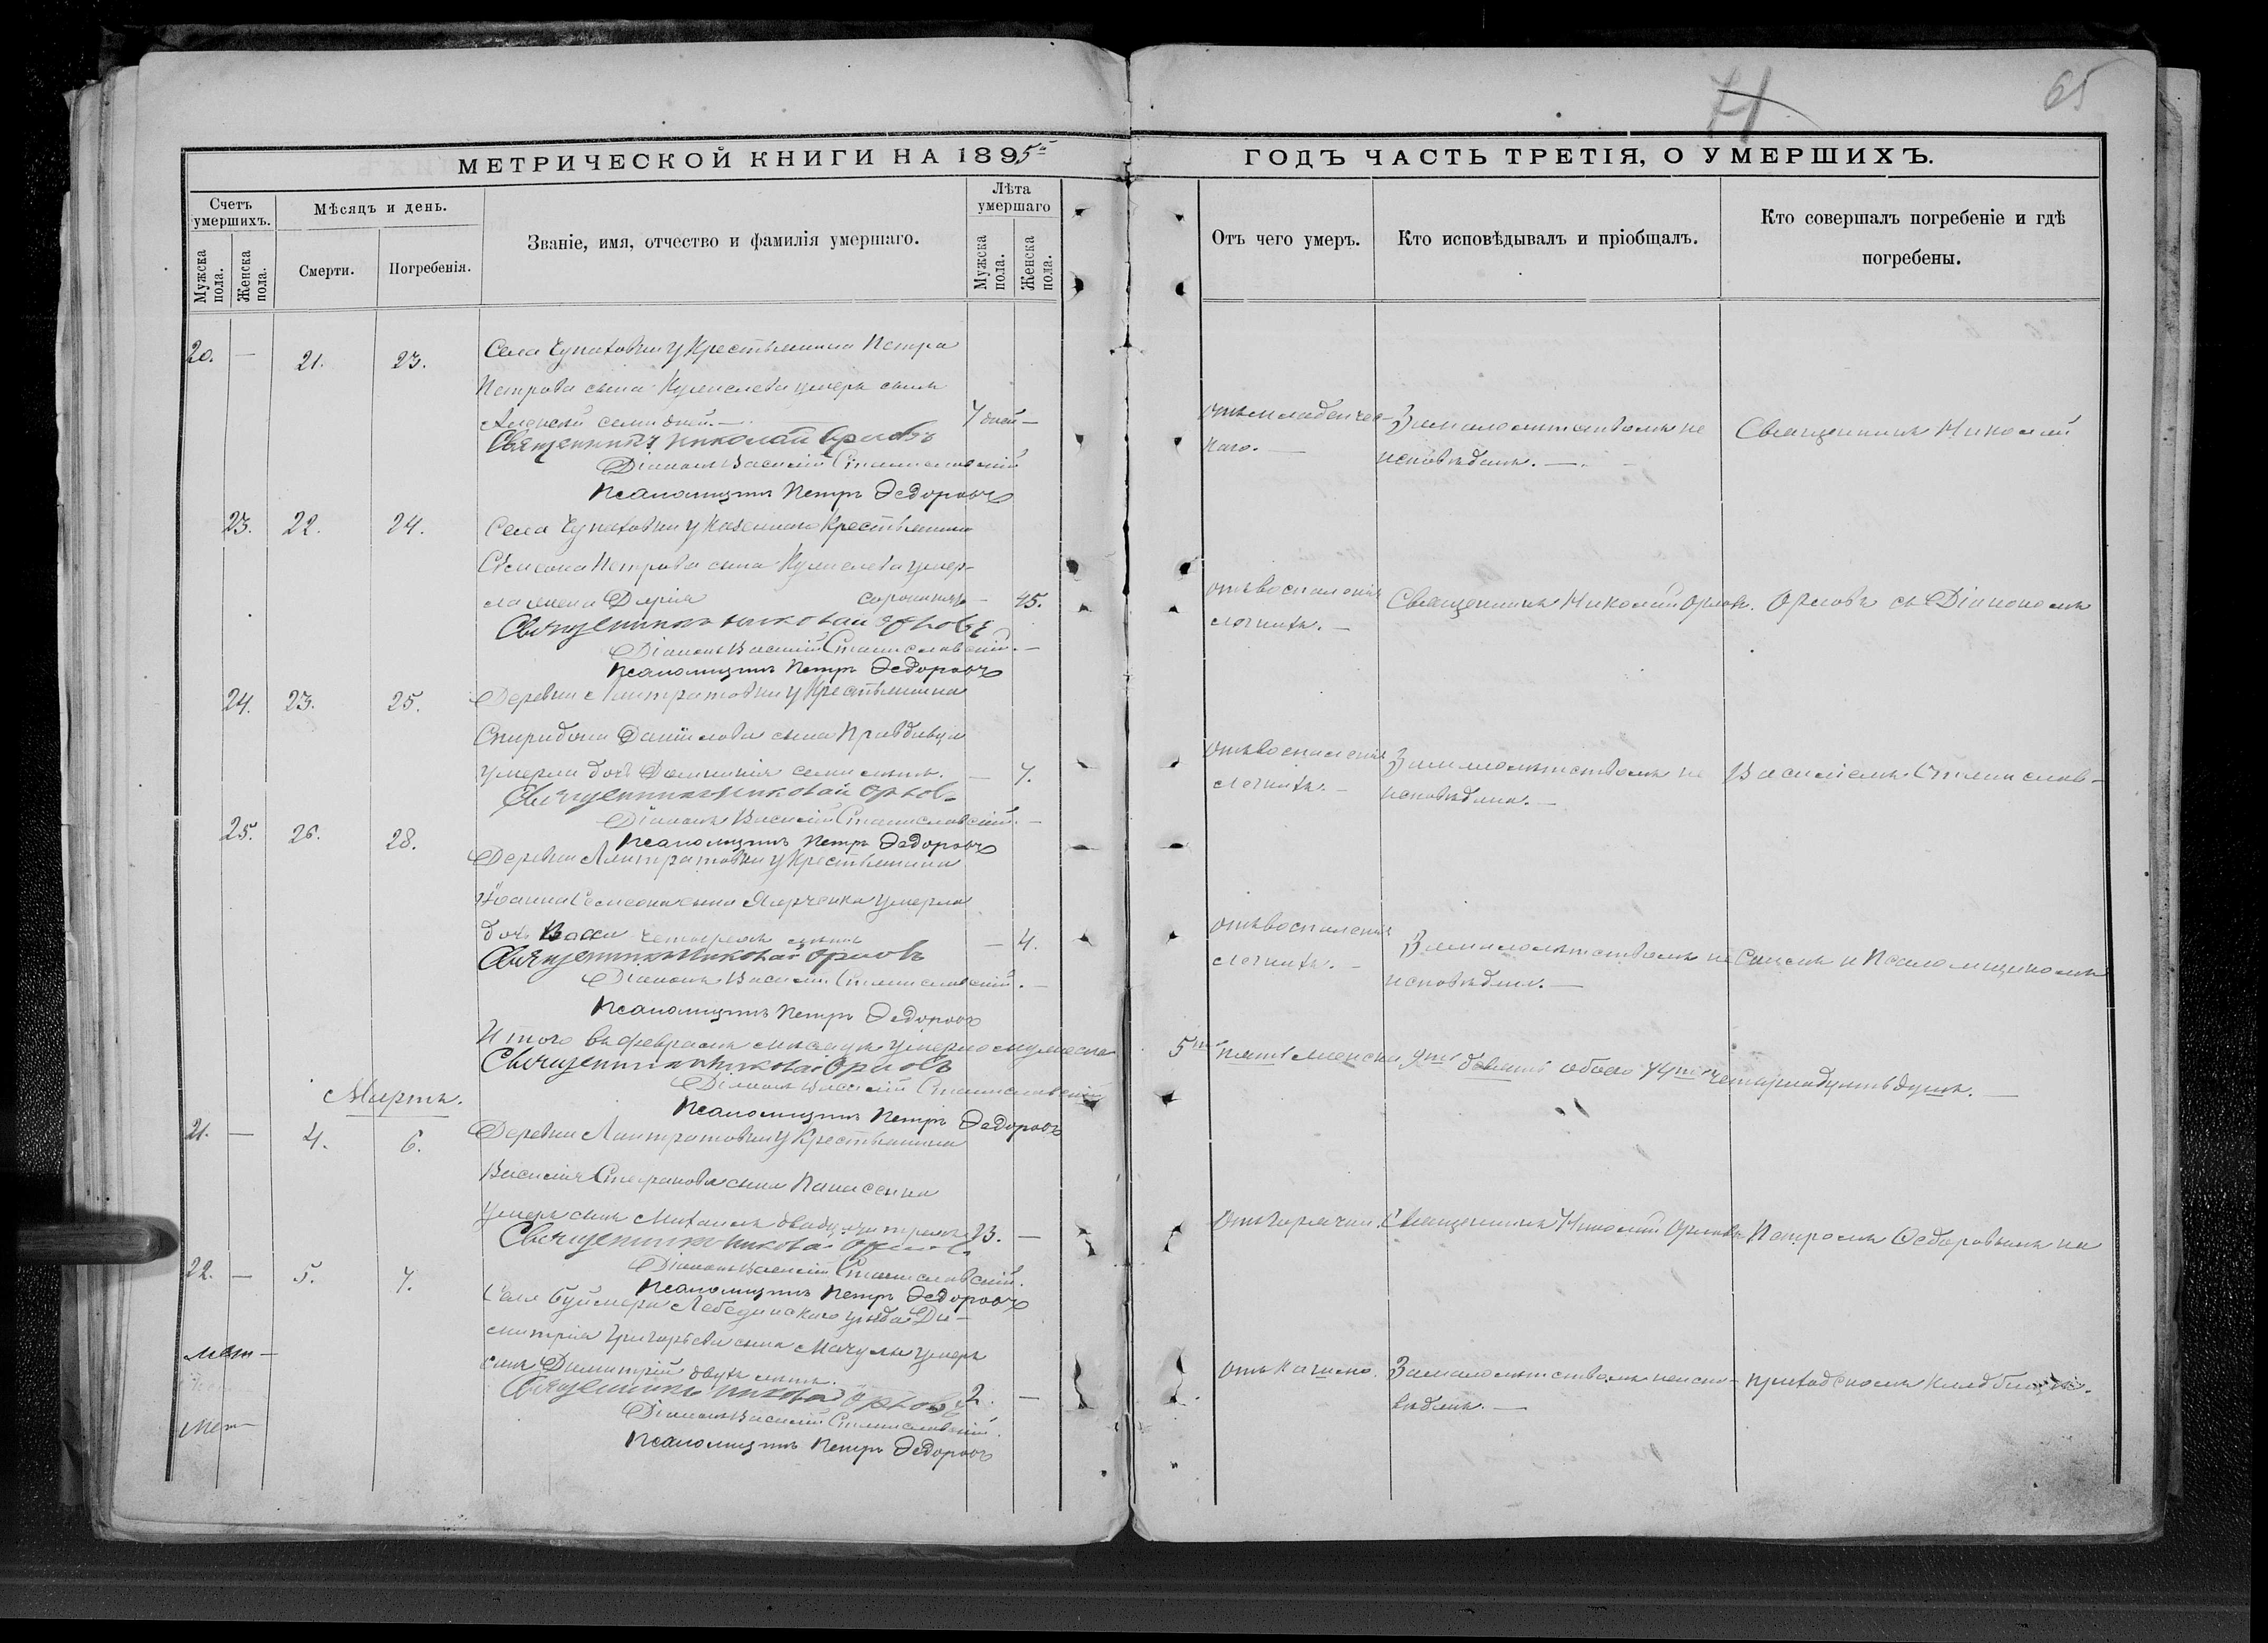 71
65
МЕТРИЧЕСКОЙ КНИГИ НА 1895й
ГОДЪ ЧАСТЬ ТРЕТІЯ, О УМЕРШИХЪ.
Счетъ умершихъ.
Мужска пола.
Женска пола.
Мѣсяцъ и день.
Смерти.
Погребенія.
Званіе, имя, отчество и фамилія умершаго.
Лѣта умершаго
Мужска пола.
Женска пола.
Отъ чего умеръ.
Кто исповѣдывалъ и пріобщалъ.
Кто совершалъ погребеніе и гдѣ погребены.
20. — 21. 23. Села Чупаховки у Крестьянина Петра
Петрова сына умеръ сынъ
Алексѣй семи дней. — 7 дней —
Священникъ Николай Орловъ
Діаконъ Василій Станиславскій
Псаломщикъ Петръ Ѳедоровъ
отъ младенчес-
каго. —
За малолѣтствомъ не
исповѣданъ. —
Священникъ Николай
23. 22. 24. Села Чупаховки у казеннаго Крестьянина
Симеона Петрова сына умер-
ла жена Дарія сорока пяти — 45.
Священникъ Николай Орловъ
Діаконъ Василій Станиславскій. —
Псаломщикъ Петръ Ѳедоровъ
отъ воспаленія
легкихъ. —
Священникъ Николай Орловъ.
Орловъ съ Діакономъ
24. 23. 25. Деревни Лантратовки у Крестьянина
Спиридона Даніилова сына Правдивца
умерла дочь Домникія семи лѣтъ. — 7.
Священникъ Николай Орловъ
Діаконъ Василій Станиславскій. —
Псаломщикъ Петръ Ѳедоровъ
отъ воспаленія
легкихъ. —
За малолѣтствомъ не
исповѣдана. —
Василіемъ Станислав-
25. 26. 28. Деревни Лантратовки у Крестьянина
Іоанна Симеонова сына Марченка умерла
дочь Васса четырехъ лѣтъ — 4.
Священникъ Николай Орловъ
Діаконъ Василій Станиславскій. —
Псаломщикъ Петръ Ѳедоровъ
отъ воспаленія
легкихъ. —
За малолѣтствомъ не
исповѣдана. —
скимъ и Псаломщикомъ
Итого въ февралѣ мѣсяцѣ умерло мужеска
5ть пять женска 9ть девять обоего 14ть четырнадцать душъ. —
Священникъ Николай Орловъ
Діаконъ Василій Станиславскій
Псаломщикъ Петръ Ѳедоровъ
Мартъ.
21. — 4. 6. Деревни Лантратовки у Крестьянина
Василія Стефанова сына Панасенка
умеръ сынъ Михаилъ двадцати трехъ 23. —
Священникъ Николай Орловъ
Діаконъ Василій Станиславскій.
Псаломщикъ Петръ Ѳедоровъ
отъ горячки.
Священникъ Николай Орловъ
Петромъ Ѳедоровымъ на
22. — 5. 7. Села Буймера Лебединскаго уѣзда Ди-
митрія Григорьева сына Мачулы умеръ
сынъ Димитрій двухъ лѣтъ. 2. —
Священникъ Николай Орловъ
Діаконъ Василій Станиславскій.
Псаломщикъ Петръ Ѳедоровъ
отъ кашля.
За малолѣтствомъ неиспо-
вѣданъ. —
приходскомъ кладбищѣ.